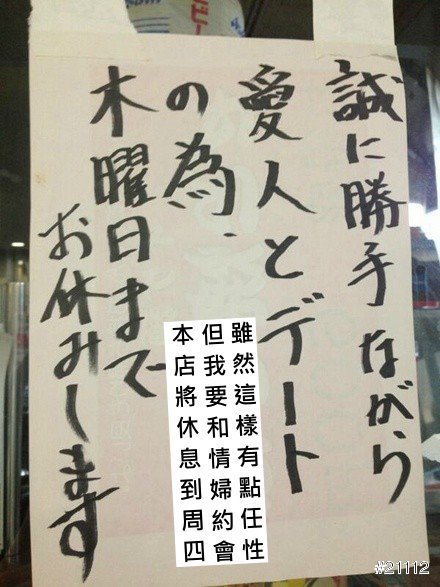 誠に勝手ながら
愛人とデート
の為、
木曜日まで
お休みします
雖然這樣有點任性
但我要和情婦約會
本店將休息到周四
#21112